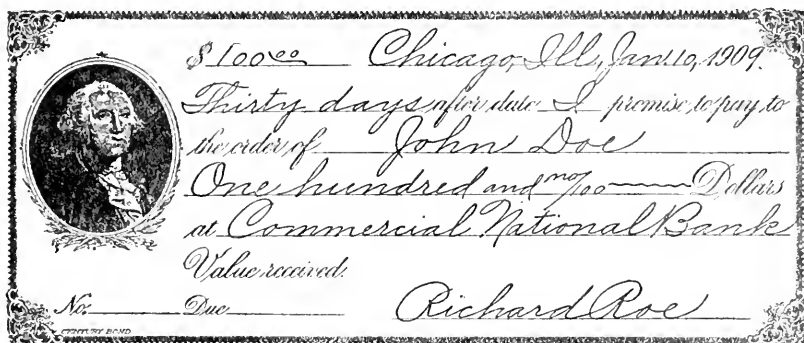 $100.00 Chicago, Ill., Jan. 10, 1909.
Thirty days after date I promise to pay to
the order of John Doe
One hundred and no/100 Dollars
at Commercial National Bank
Value received.
No. Due Richard Roe
CENTURY BOND